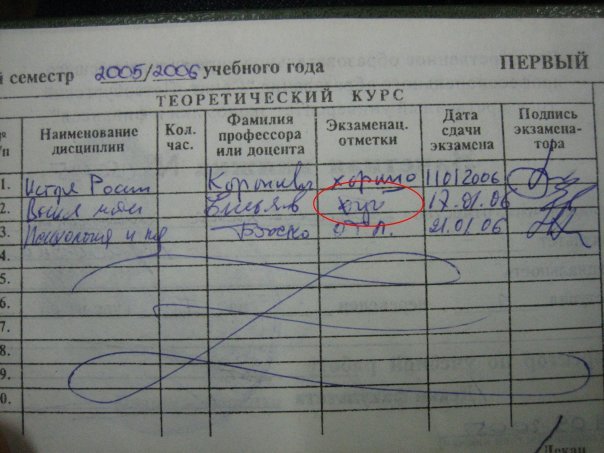 й семестр 2005/2006 учебного года ПЕРВЫЙ
ТЕОРЕТИЧЕСКИЙ КУРС
№ п/п Наименование дисциплин Кол. час. Фамилия профессора или доцента Экзаменац. отметки Дата сдачи экзамена Подпись экзамена- тора
1. История России хорошо 11012006
2. 17.01.06
3. Психология и пед отл. 21.01.06
4.
5.
6.
7.
8.
9.
0.
Декан